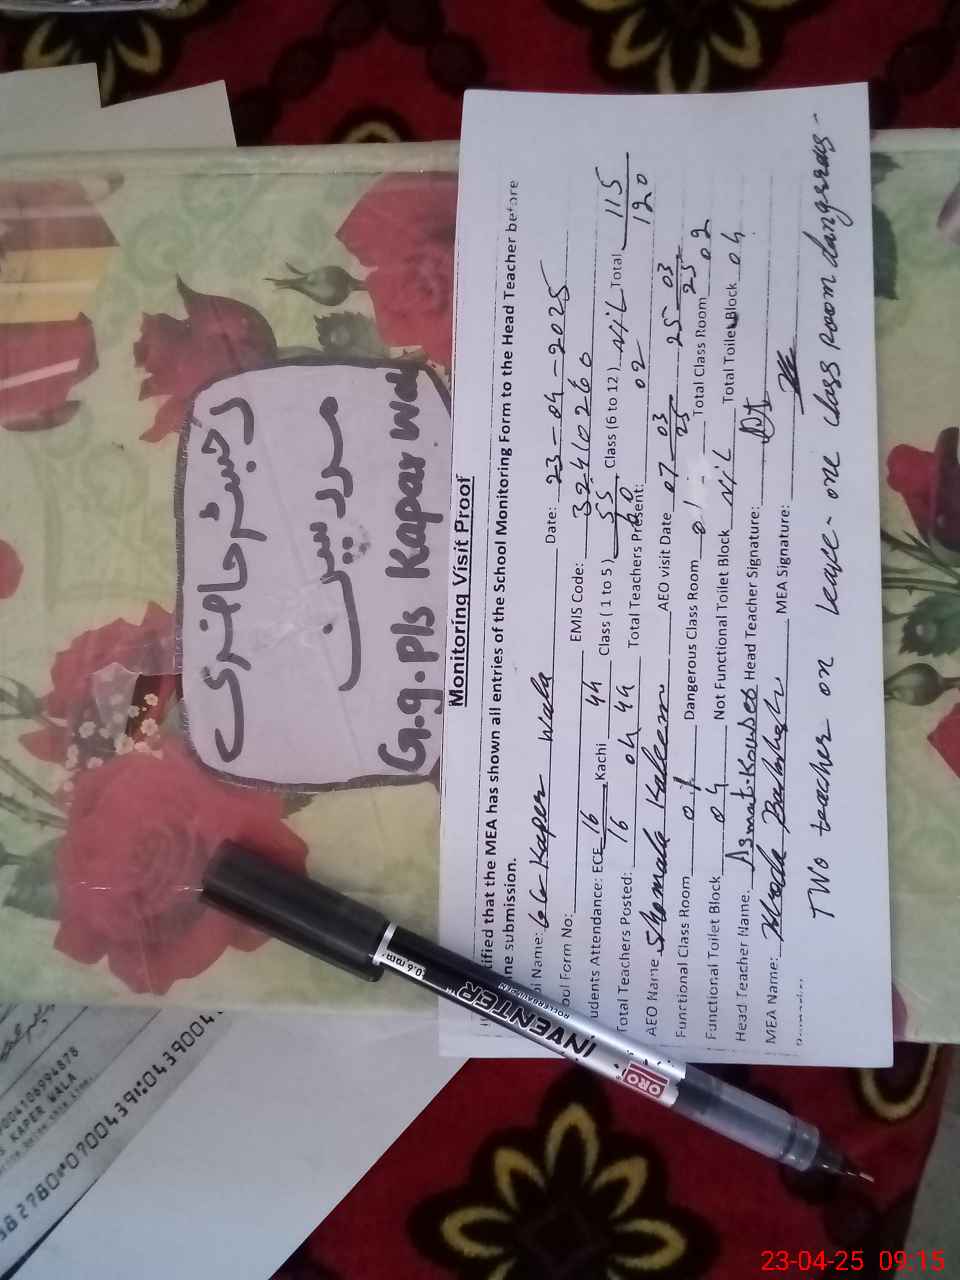 رجسٹر حاضری
مدرسین
G.g.Pls Kapar Wala
Monitoring Visit Proof
tified that the MEA has shown all entries of the School Monitoring Form to the Head Teacher before
ine submission.
ol Name: GG Kaper Wala Date: 23-04-2025
ool Form No: EMIS Code: 32410260
udents Attendance: ECE 16/16 Kachi 44/49 Class (1 to 5) 55 Class (6 to 12) Nil Total 115/120
Total Teachers Posted: 04 Total Teachers Present: 02
AEO Name Shamala Kaleem AEO visit Date 07-03-25 25-03-25
Functional Class Room 01 Dangerous Class Room 01 Total Class Room 02
Functional Toilet Block 04 Not Functional Toilet Block Nil Total Toilet Block 04
Head Teacher Name. Asmat Kouser Head Teacher Signature:
MEA Name: MEA Signature:
Two teacher on leave- one class room dangerous-
INVENTER
ROLLERBALL PEN
0.6 mm
ORO
P004106994878
KAPER WALA
23-04-25 09:15